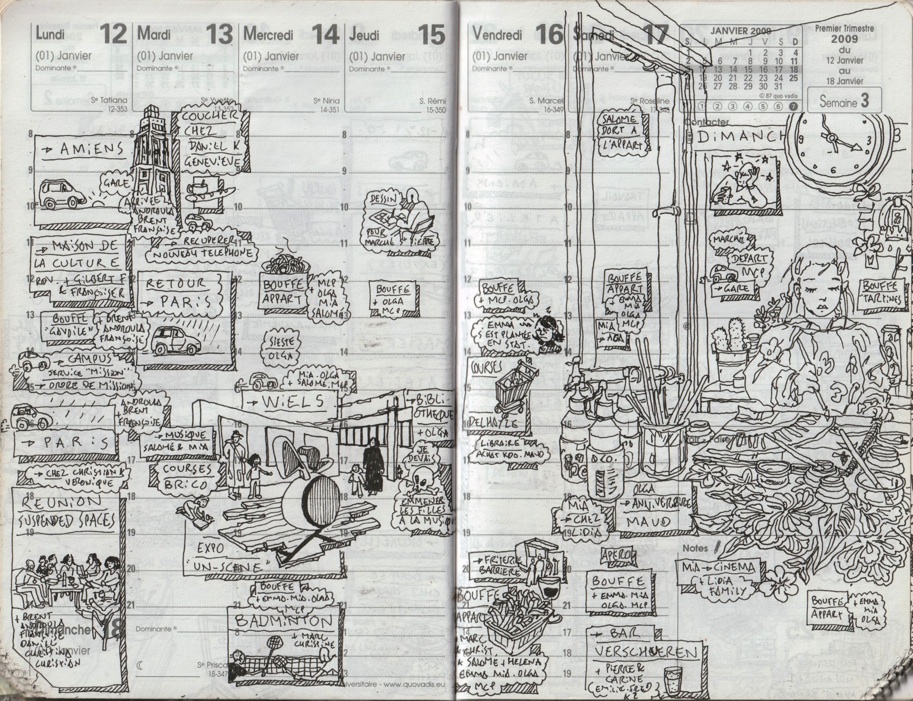 Lundi 12
(01) Janvier
Dominante
Sᵉ Tatiana
12-353
→ AMIENS
GARE
ARRIVÉE
ANDROULA
BRENT
FRANÇOISE
→ MAISON DE
LA CULTURE
+ GILBERT F
& FRANÇOISE R
BOUFFE
+ BRENT
ANDROULA
FRANÇOISE
→ CAMPUS
SERVICE "MISSION"
→ ORDRE DE MISSION
ANDROULA
BRENT
FRANÇOISE
→ PARIS
→ CHEZ CHRISTIAN &
VÉRONIQUE
RÉUNION
SUSPENDED SPACES
+ BRENT
ANDROULA
FRANÇOISE
DANIEL
CHRISTINE
CHRISTIAN
Dimanche 18
Janvier
Mardi 13
(01) Janvier
Dominante
COUCHER
CHEZ
DANIEL &
GENEVIÈVE
→ RECUPERER
NOUVEAU TELEPHONE
RETOUR
→ PARIS
→ MUSIQUE
SALOMÉ & MIA
COURSES
BRICO
EXPO
"UN-SCENE"
Dominante
Sᵉ Prisca
Mercredi 14
(01) Janvier
Dominante
Sᵉ Nina
14-351
BOUFFE
APPART
MCP
OLGA
SALOMÉ
SIESTE
OLGA
MIA. OLGA
+ SALOMÉ. MCP
→ WIELS
BOUFFE
+ EMMA. MIA. OLGA
MCP
BADMINTON
+ MARC
CHRISTINE
Jeudi 15
(01) Janvier
Dominante
S. Rémi
15-350
DESSIN
POUR
BOUFFE
+ OLGA
MCP
→ BIBLI-
OTHEQUE
+ OLGA
JE
DEVAIS
EMMENER
LES FILLES
À LA MUSIQUE
universitaire - www.quovadis.eu
Vendredi 16
(01) Janvier
Dominante
S. Marcel
16-349
BOUFFE
+ MCP. OLGA
EMMA
S'EST PLANTÉE
EN STAT.
COURSES
DELHAIZE
LIBRAIRIE
ACHAT KDO. MAUD
→ FRITERIE
BARRIÈRE
BOUFFE
APPART
+ MARC
CHRIST.
& SALOMÉ + HELENA
EMMA. MIA. OLGA
MCP
Samedi 17
(01) Janvier
Dominante
Sᵉ Roseline
SALOMÉ
DORT À
L'APPART
BOUFFE
APPART
+ EMMA
MIA
OLGA
MCP
MIA
MIA
→ CHEZ
LIDIA
OLGA
→ ANNIVERSAIRE
MAUD
APERO
BOUFFE
+ EMMA. MIA
OLGA. MCP
→ BAR
VERSCHUEREN
+ PIERRE &
CARINE
JANVIER 2009
S. L M M J V S D
1 2 3 4
6 7 8 9 10 11
13 14 15 16 17 18
19 20 21 22 23 24 25
26 27 28 29 30 31
© 87 quo vadis
1 2 3 4 5 6 7
Premier Trimestre
2009
du
12 Janvier
au
18 Janvier
Semaine 3
Contacter
DIMANCH
MARCHÉ
DÉPART
MCP
→ GARE
BOUFFE
TARTINES
Notes
MIA → CINEMA
+ LIDIA &
FAMILY
BOUFFE
APPART
+ EMMA
MIA
OLGA